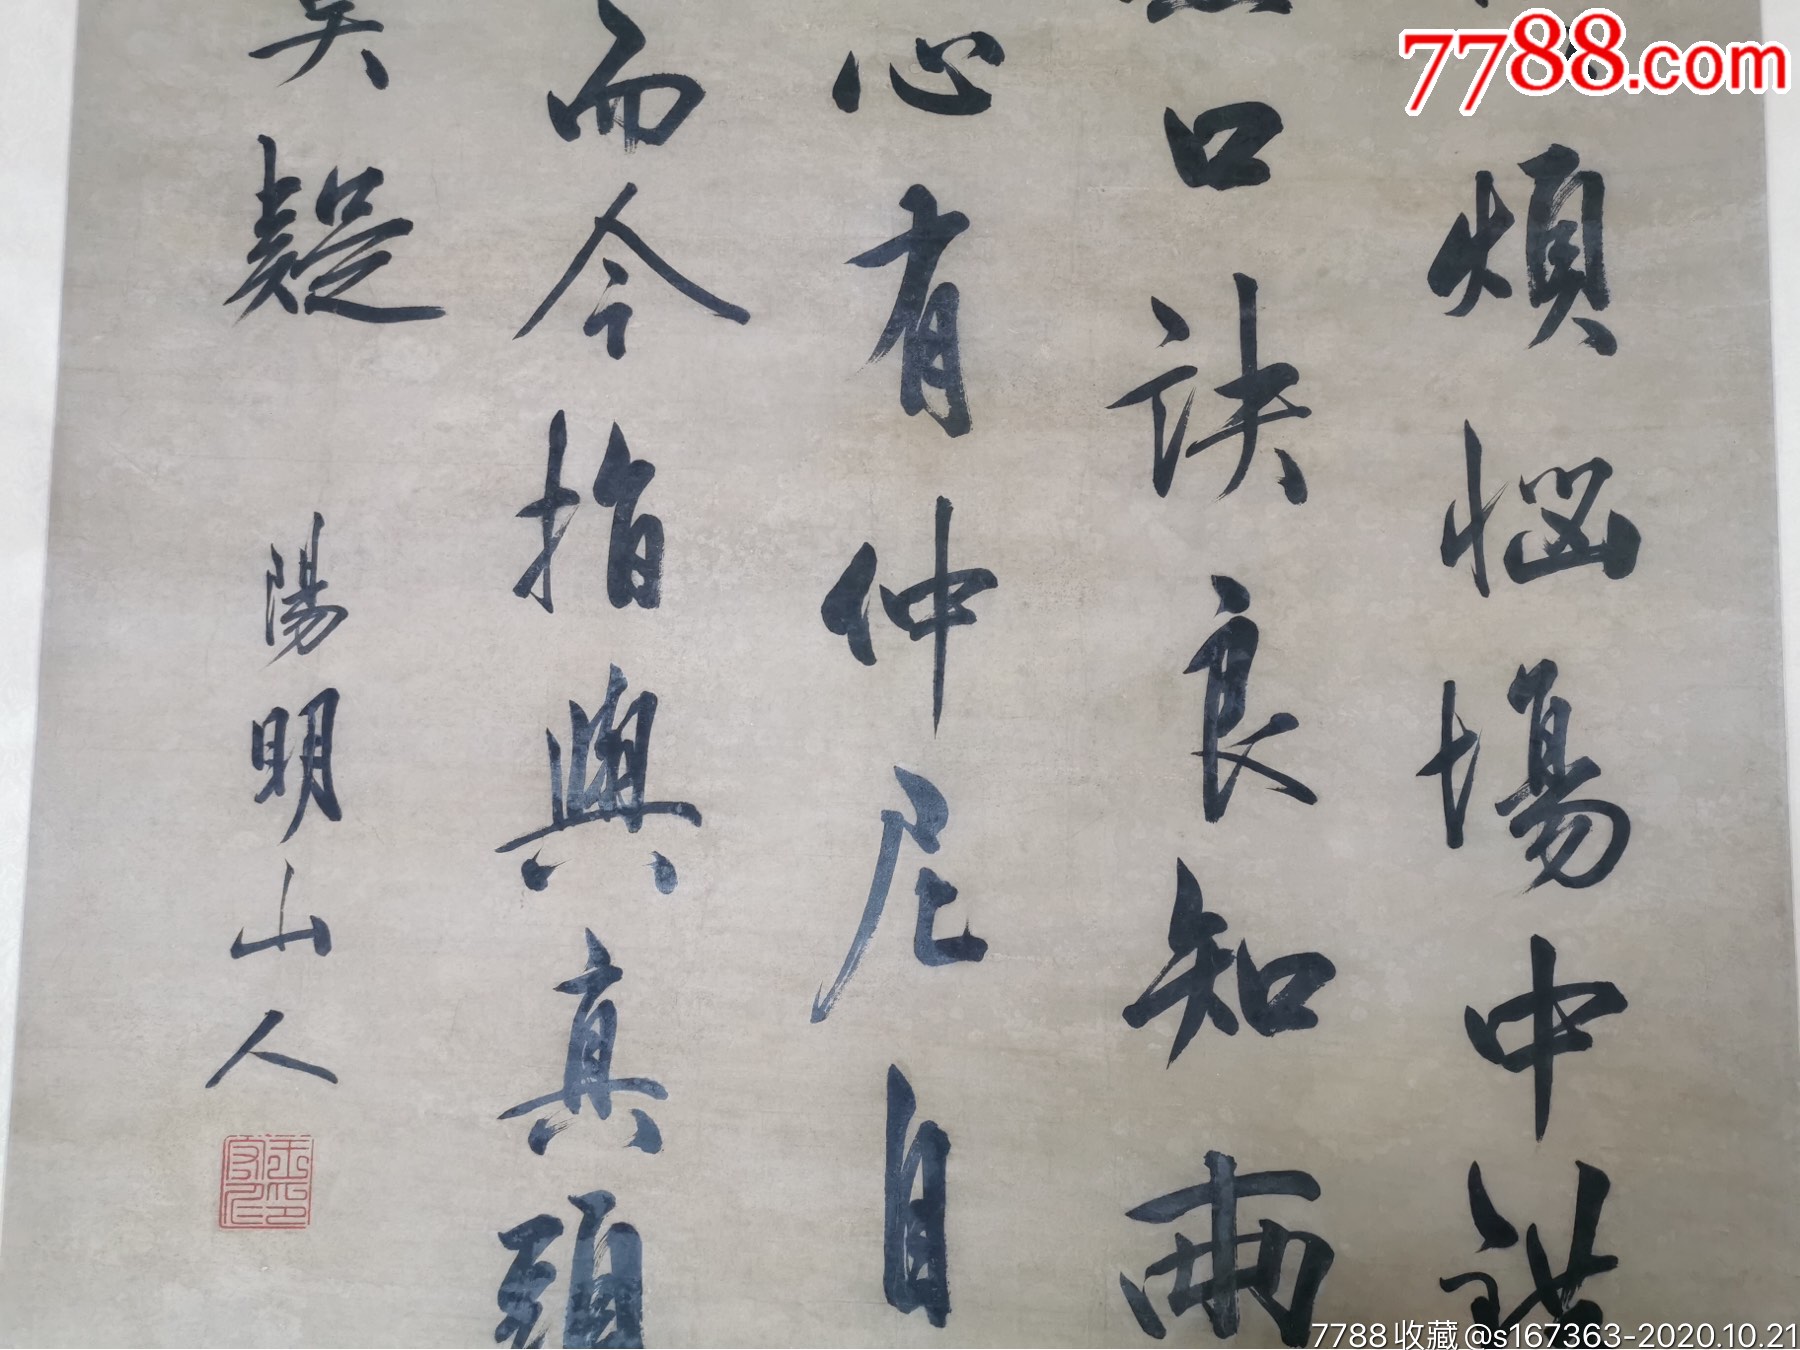 煩惱場中
口訣良知兩
心有仲尼自
而今指與真頭
疑
陽明山人
7788.com
7788收藏@s167363-2020.10.21